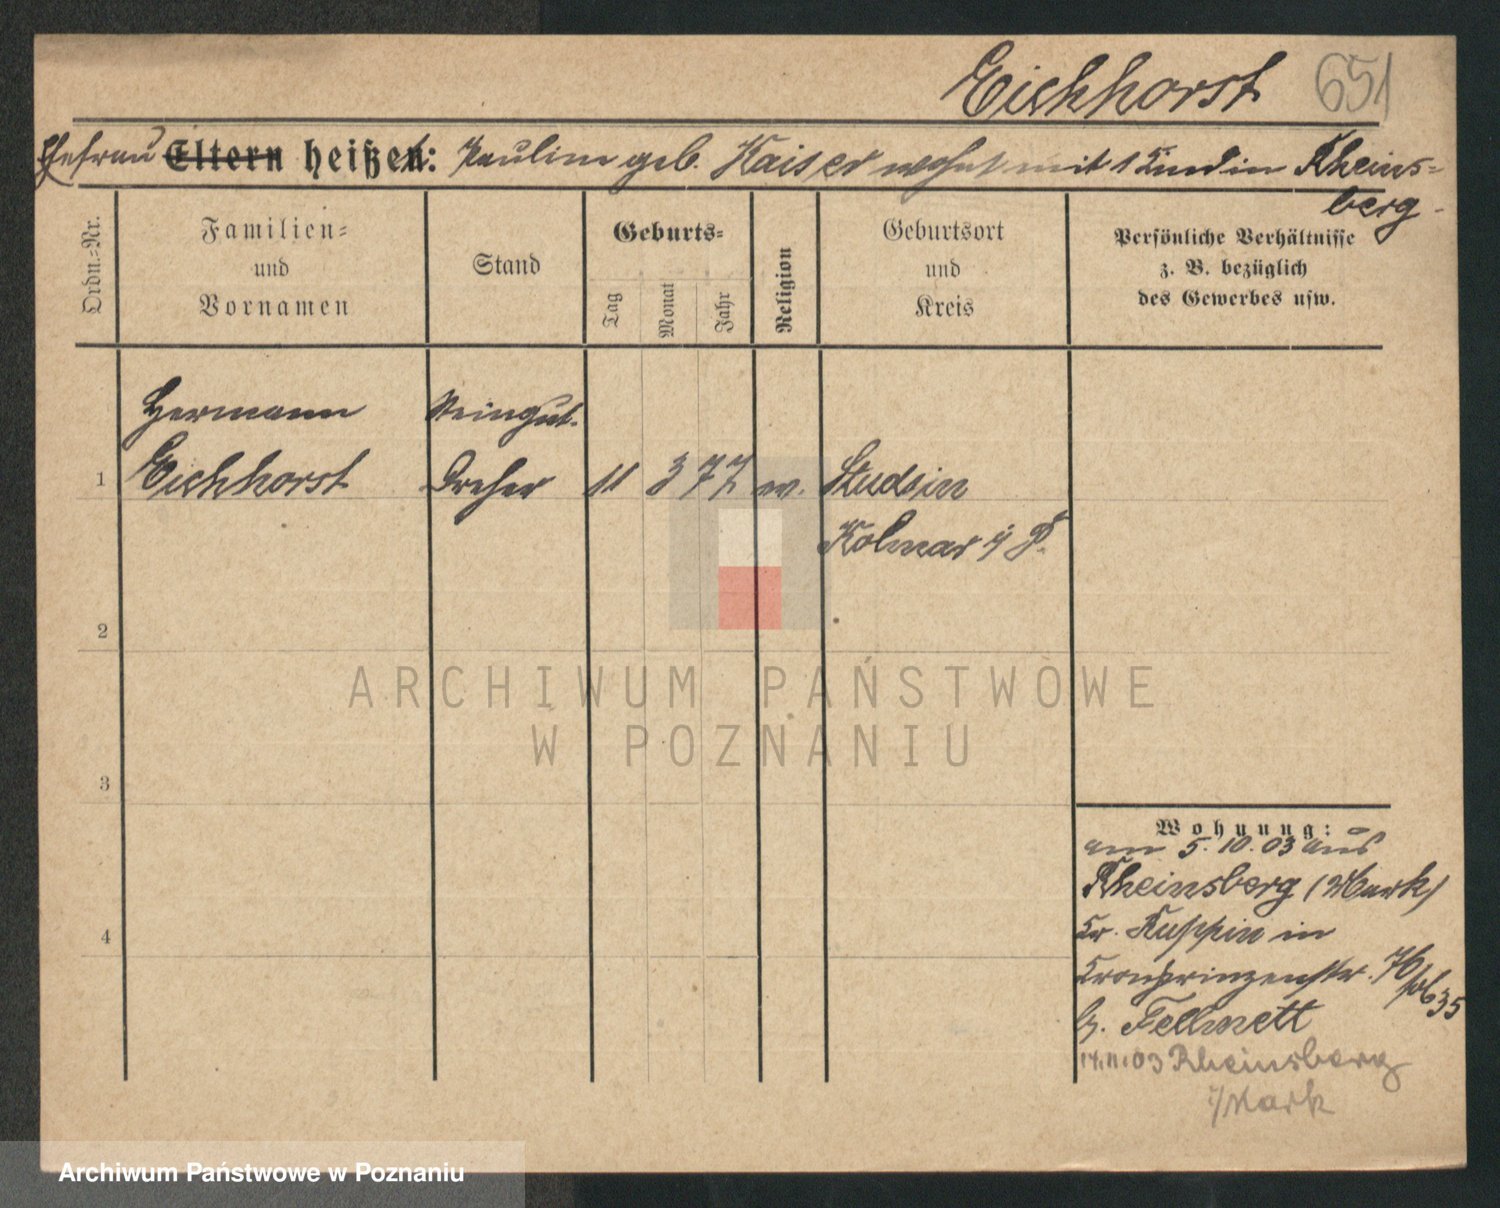 Eichhorst 651
Ehefrau Eltern heißen: Pauline geb. Kaiser wohnt mit 1 Kind in Rheins-
berg.
Ordn.=Nr.
Familien=
und
Vornamen
Stand
Geburts=
Tag
Monat
Jahr
Religion
Geburtsort
und
Kreis
Persönliche Verhältnisse
z. B. bezüglich
des Gewerbes usw.
Hermann Steingut-
1 Eichhorst Dreher 11 3 77 ev. Studsin
Kolmar i/ P.
2
ARCHIWUM PAŃSTWOWE
W POZNANIU
3
Wohnung:
am 5. 10. 03 aus
Rheinsberg (Mark)
4
Kr. Ruppin in
Kronprinzenstr. 76
b. Fellmett
14.11.03 Rheinsberg
i/Mark
Archiwum Państwowe w Poznaniu